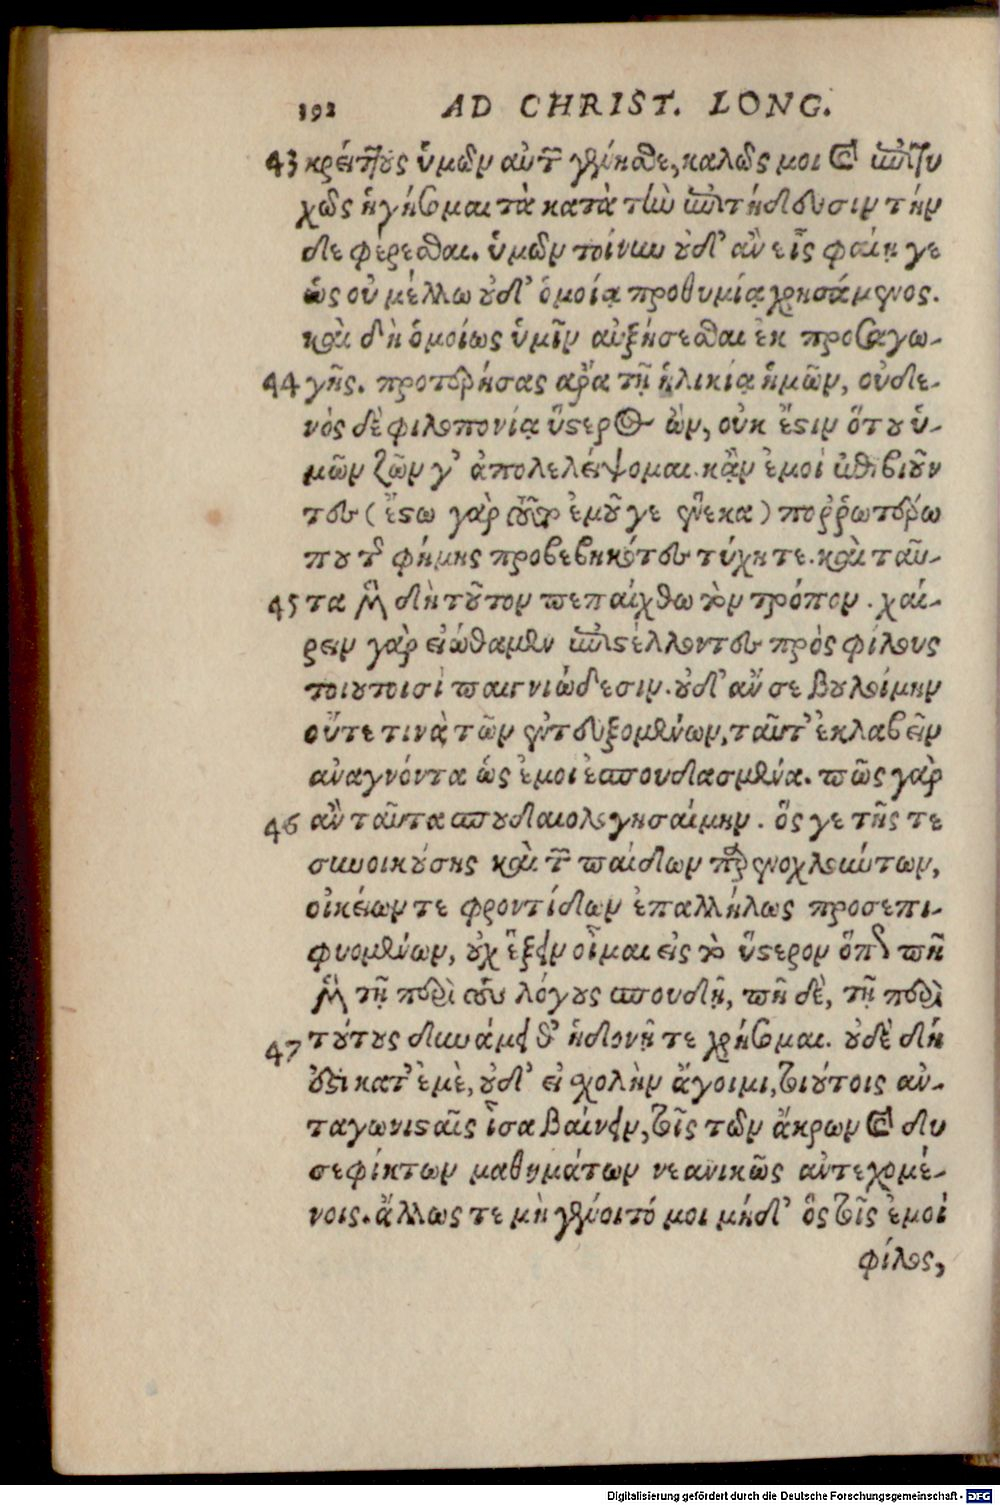 192 AD CHRIST. LONG.
43 κρείττους ὑμῶν αὐτῶν γεγένησθε, καλῶς μοι καὶ ἐπιτυ
χῶς ἡγήσομαι τὰ κατὰ τὴν ἐπιτήδευσιν τήνδε
φέρεσθαι. ὑμῶν τοίνυν οὐδ' ἂν εἷς φαίη γε
ὡς οὐ μέλλω οὐδ' ὁμοίᾳ προθυμίᾳ χρησάμενος.
καὶ δὴ ὁμοίως ὑμῖν αὐξήσεσθαι ἐκ προσαγω-
44 γῆς. προτερήσας ἄρα τῇ ἡλικίᾳ ἡμῶν, οὐδε-
νὸς δὲ φιλοπονίᾳ ὕστερος ὢν, οὐκ ἔστιν ὅτου ὑ-
μῶν ζῶν γ' ἀπολελείψομαι. κἂν ἐμοὶ ἐπιβιοῦν
τες (ἔστω γὰρ τοῦτο ἐμοῦ γε ἕνεκα) πορρωτέρω
που τῆς φήμης προβεβηκότες τύχητε. καὶ ταῦ-
45 τα μὲν δὴ τοῦτον πεπαίχθω τὸν τρόπον. χαί-
ρειν γὰρ εἰώθαμεν ἐπιστέλλοντες πρὸς φίλους
τοιουτοισὶ παιγνιώδεσιν. οὐδ' ἄν σε βουλοίμην
οὔτε τινὰ τῶν ἐντευξομένων, ταῦτ' ἐκλαβεῖν
ἀναγνόντα ὡς ἐμοὶ ἐσπουδασμένα. πῶς γὰρ
46 ἂν ταῦτα σπουδαιολογησαίμην. ὅς γε τῆς τε
συνοικούσης καὶ τῶν παίδων παρενοχλούντων,
οἰκείων τε φροντίδων ἐπαλλήλως προσεπι-
φυομένων, οὐχ ἕξειν οἶμαι εἰς τὸ ὕστερον ὅπη πῆ
μὲν τῇ περὶ τοὺς λόγους σπουδῇ, πῆ δὲ, τῇ περὶ
47 τούτους δυνάμει θ' ἡδονῇ τε χρήσομαι. οὐδὲ δή
οὑξι κατ' ἐμὲ, οὐδ' εἰ σχολὴν ἄγοιμι, τοιούτοις ἀν-
ταγωνισταῖς ἶσα βαίνειν, τοῖς τῶν ἄκρων καὶ δυ
σεφίκτων μαθημάτων νεανικῶς ἀντεχομέ-
νοις. ἄλλως τε μὴ γένοιτό μοι μήδ' ὃς τοῖς ἐμοὶ
φίλος,
Digitalisierung gefördert durch die Deutsche Forschungsgemeinschaft - DFG